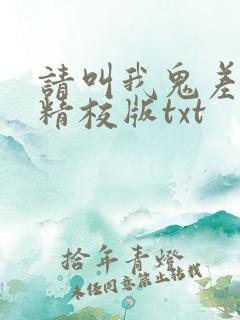 請叫我鬼差
精校版txt
拾年青燈
未經同意禁止轉載